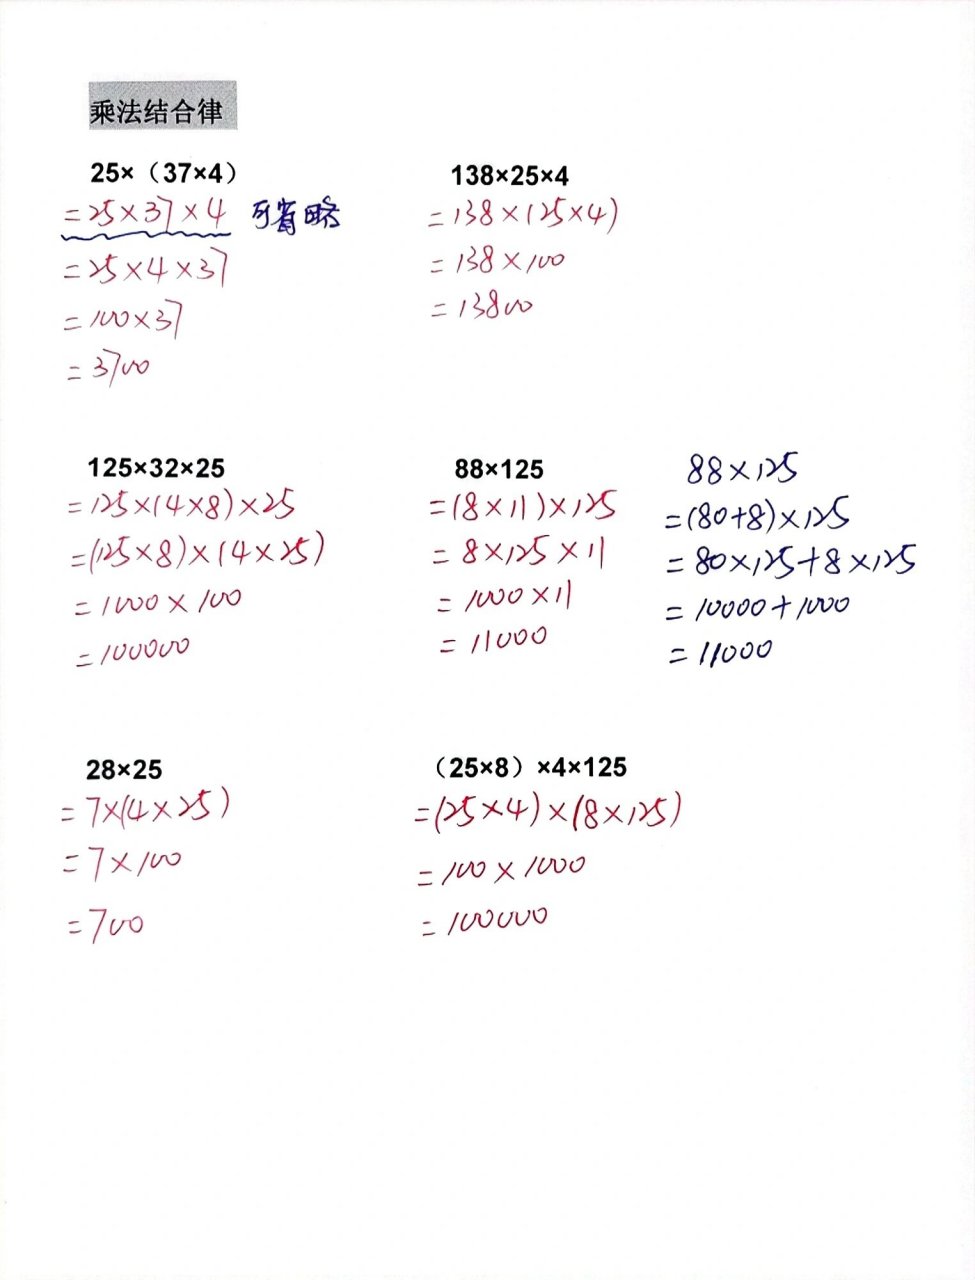 乘法结合律
25×（37×4）
=25×37×4 可省略
=25×4×37
=100×37
=3700
138×25×4
=138×(25×4)
=138×100
=13800
125×32×25
=125×(4×8)×25
=(125×8)×(4×25)
=1000×100
=100000
88×125
=(8×11)×125
=8×125×11
=1000×11
=11000
88×125
=(80+8)×125
=80×125+8×125
=10000+1000
=11000
28×25
=7×(4×25)
=7×100
=700
（25×8）×4×125
=(25×4)×(8×125)
=100×1000
=100000